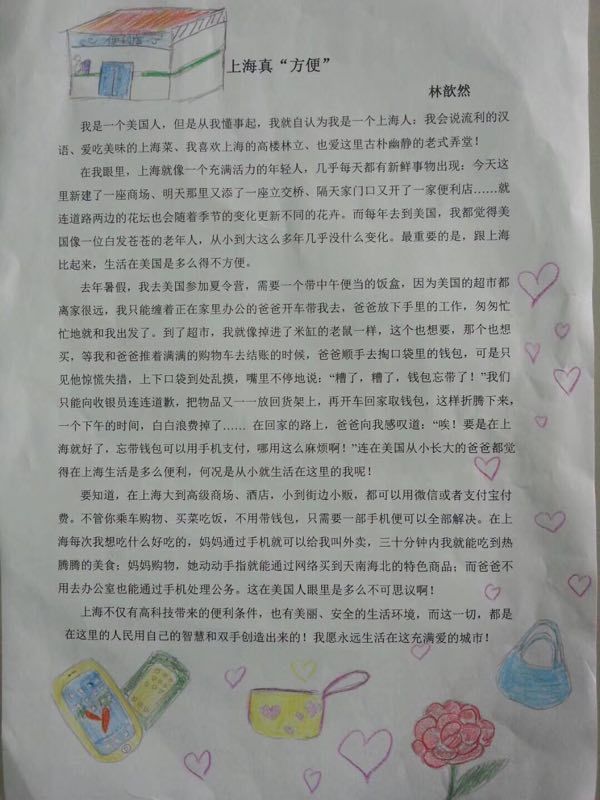 便利店
上海真“方便”
林歆然
我是一个美国人，但是从我懂事起，我就自认为我是一个上海人：我会说流利的汉
语、爱吃美味的上海菜、我喜欢上海的高楼林立、也爱这里古朴幽静的老式弄堂！
在我眼里，上海就像一个充满活力的年轻人，几乎每天都有新鲜事物出现：今天这
里新建了一座商场、明天那里又添了一座立交桥、隔天家门口又开了一家便利店……就
连道路两边的花坛也会随着季节的变化更新不同的花卉。而每年去到美国，我都觉得美
国像一位白发苍苍的老年人，从小到大这么多年几乎没什么变化。最重要的是，跟上海
比起来，生活在美国是多么得不方便。
去年暑假，我去美国参加夏令营，需要一个带中午便当的饭盒，因为美国的超市都
离家很远，我只能缠着正在家里办公的爸爸开车带我去，爸爸放下手里的工作，匆匆忙
忙地就和我出发了。到了超市，我就像掉进了米缸的老鼠一样，这个也想要，那个也想
买，等我和爸爸推着满满的购物车去结账的时候，爸爸顺手去掏口袋里的钱包，可是只
见他惊慌失措，上下口袋到处乱摸，嘴里不停地说：“糟了，糟了，钱包忘带了！”我们
只能向收银员连连道歉，把物品又一一放回货架上，再开车回家取钱包，这样折腾下来，
一个下午的时间，白白浪费掉了…… 在回家的路上，爸爸向我感叹道：“唉！要是在上
海就好了，忘带钱包可以用手机支付，哪用这么麻烦啊！”连在美国从小长大的爸爸都觉
得在上海生活是多么便利，何况是从小就生活在这里的我呢！
要知道，在上海大到高级商场、酒店，小到街边小贩，都可以用微信或者支付宝付
费。不管你乘车购物、买菜吃饭，不用带钱包，只需要一部手机便可以全部解决。在上
海每次我想吃什么好吃的，妈妈通过手机就可以给我叫外卖，三十分钟内我就能吃到热
腾腾的美食；妈妈购物，她动动手指就能通过网络买到天南海北的特色商品；而爸爸不
用去办公室也能通过手机处理公务。这在美国人眼里是多么不可思议啊！
上海不仅有高科技带来的便利条件，也有美丽、安全的生活环境，而这一切，都是
在这里的人民用自己的智慧和双手创造出来的！我愿永远生活在这充满爱的城市！